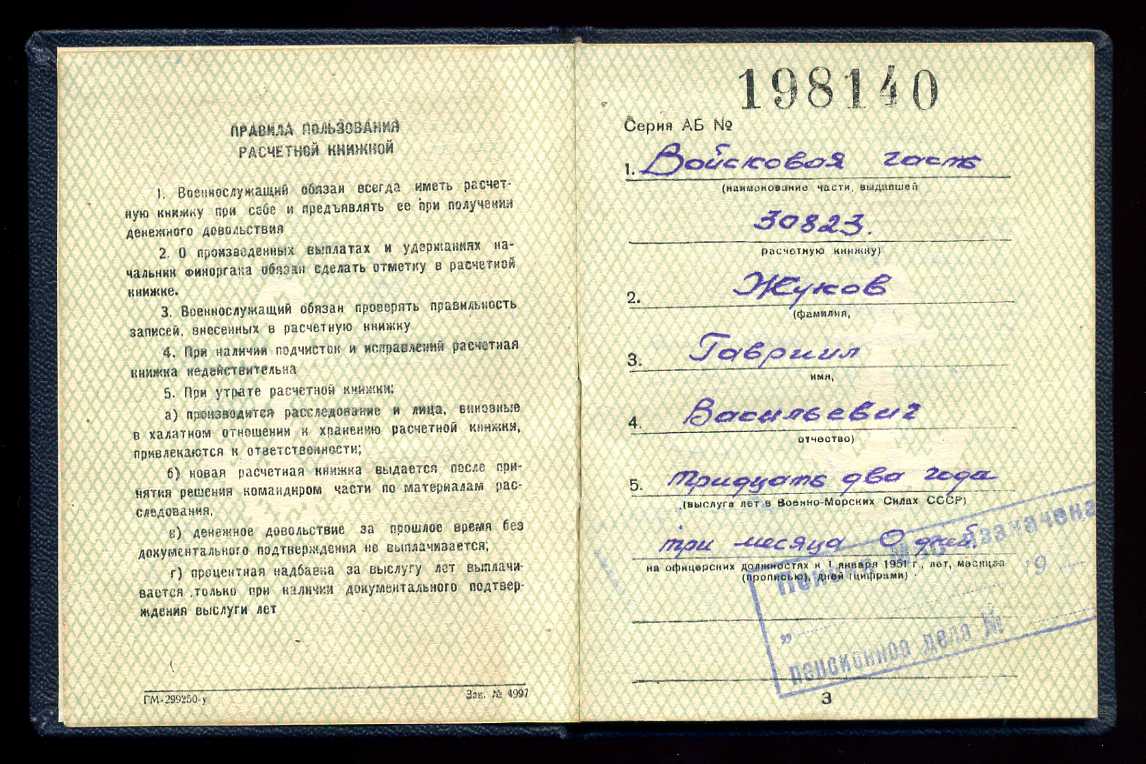 ПРАВИЛА ПОЛЬЗОВАНИЯ
РАСЧЕТНОЙ КНИЖКОЙ
1. Военнослужащий обязан всегда иметь расчет-
ную книжку при себе и предъявлять ее при получении
денежного довольствия
2. О произведенных выплатах и удержаниях на-
чальник финоргана обязан сделать отметку в расчетной
книжке.
3. Военнослужащий обязан проверять правильность
записей, внесенных в расчетную книжку
4. При наличии подчисток и исправлений расчетная
книжка недействительна
5. При утрате расчетной книжки:
а) производится расследование и лица, виновные
в халатном отношении к хранению расчетной книжки,
привлекаются к ответственности;
б) новая расчетная книжка выдается после при-
нятия решения командиром части по материалам рас-
следования.
в) денежное довольствие за прошлое время без
документального подтверждения не выплачивается;
г) процентная надбавка за выслугу лет выплачи-
вается только при наличии документального подтвер-
ждения выслуги лет
ГМ-299250-у Зак. № 4997
198140
Серия АБ №
1. Войсковая часть
(наименование части, выдавшей
30823.
расчетную книжку)
2. Жуков
(фамилия,
3. Гавриил
имя,
4. Васильевич
отчество)
5. тридцать два года
(выслуга лет в Военно-Морских Силах СССР)
три месяца 0 дней
на офицерских должностях к 1 января 1951 г., лет, месяцев
(прописью), дней (цифрами)
Пенсия назначена
19
"
пенсионное дело №
3